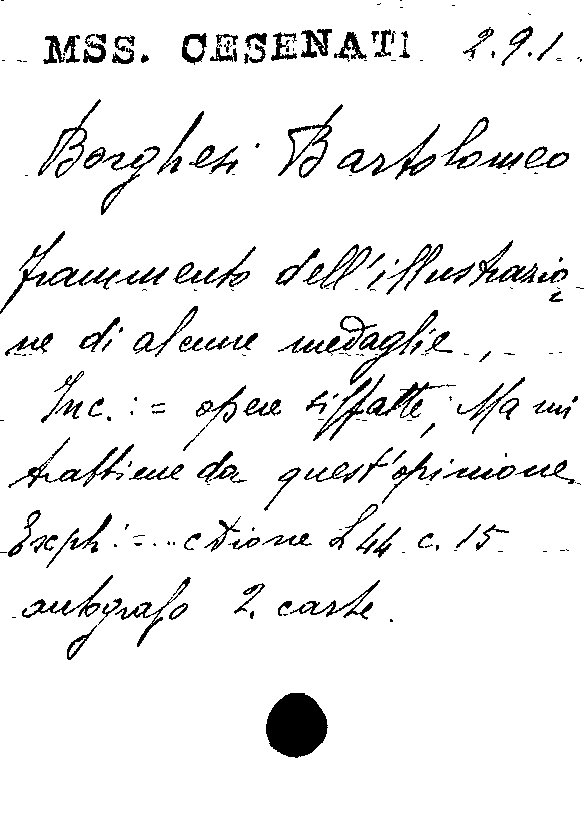 MSS. CESENATI 2.9.1.
Borghesi Bartolomeo
frammento dell'illustrazio
ne di alcune medaglie,
Inc. := opere siffatte; Ma mi
trattiene da quest'opinione.
Exph := ... e Dione L 44 c. 15
autografo 2. carte.